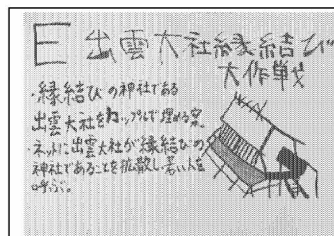 E 出雲大社縁結び
大作戦
・縁結びの神社である
出雲大社をカップルで埋める案
・ネットに出雲大社が縁結びの
神社であることを拡散し若い人を
呼ぶ。